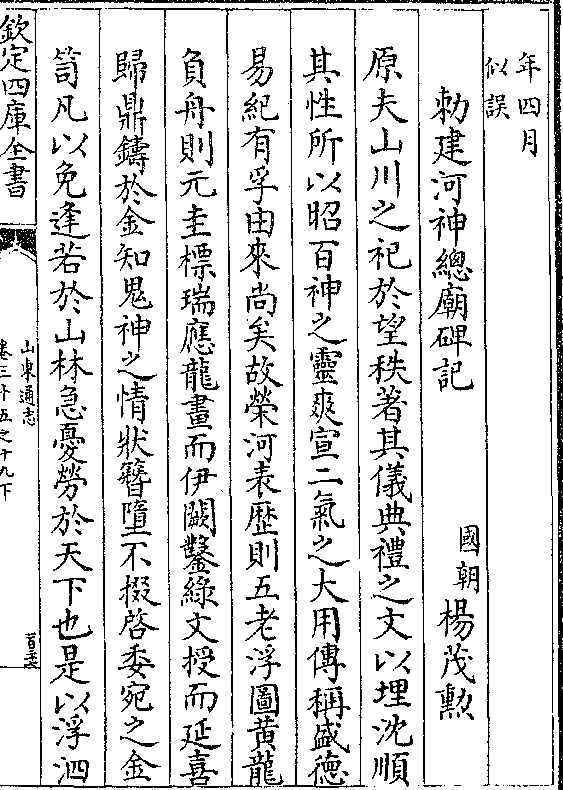 年四月
似誤
勅建河神總廟碑記
國朝楊茂勲
原夫山川之祀於望秩著其儀典禮之文以埋沈順
其性所以昭百神之靈爽宣二氣之大用傳稱盛德
易紀有孚由來尚矣故榮河表歴則五老浮圖黄龍
負舟則元圭標瑞應龍畫而伊闕鑿綠文授而延喜
歸鼎鑄於金知鬼神之情狀簪墮不掇啓委宛之金
笥凡以免逢若於山林急憂勞於天下也是以浮泗
欽定四庫全書
山東通志
卷三十五之十九下